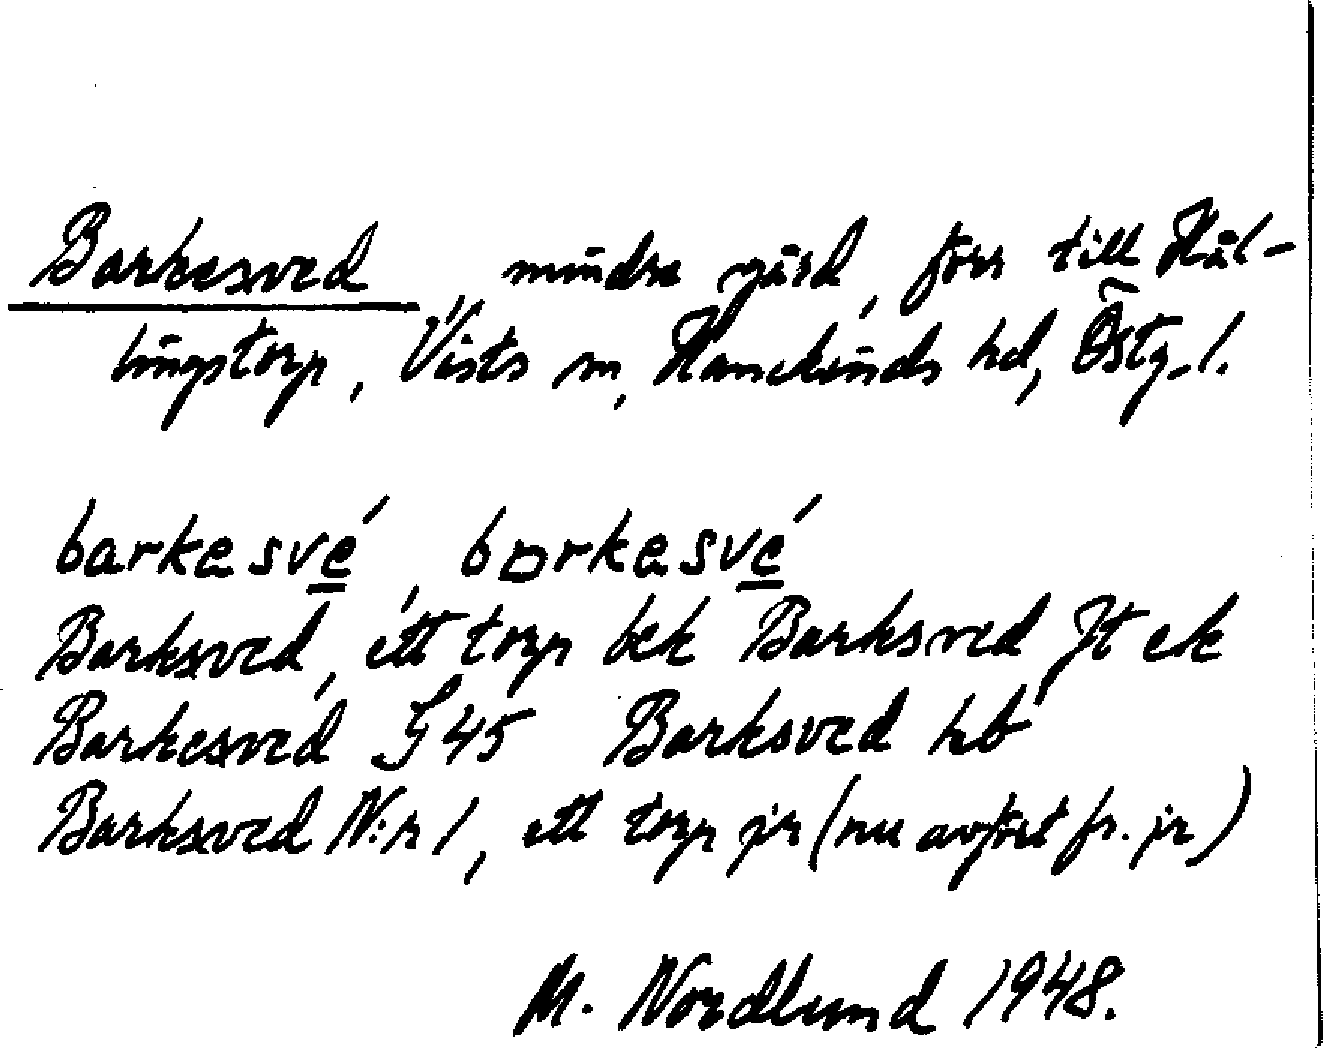 Barkesved, mindre gård, förr till Häl-
lingstorp, Vists sn, Hanekinds hd, Östg.l.
barkesvé, bɒrkesvé
Barksved, ett torp bek Barksved Jt ek
Barkesved G 45 Barksved hb
Barksved N:r 1, ett torp jr (nu avfört fr. jr)
M. Nordlund 1948.